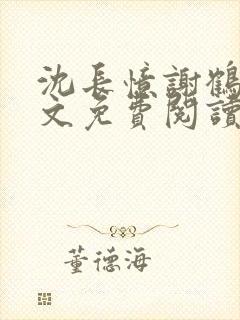 沈長憶謝鶴
文免費閱讀
董德海